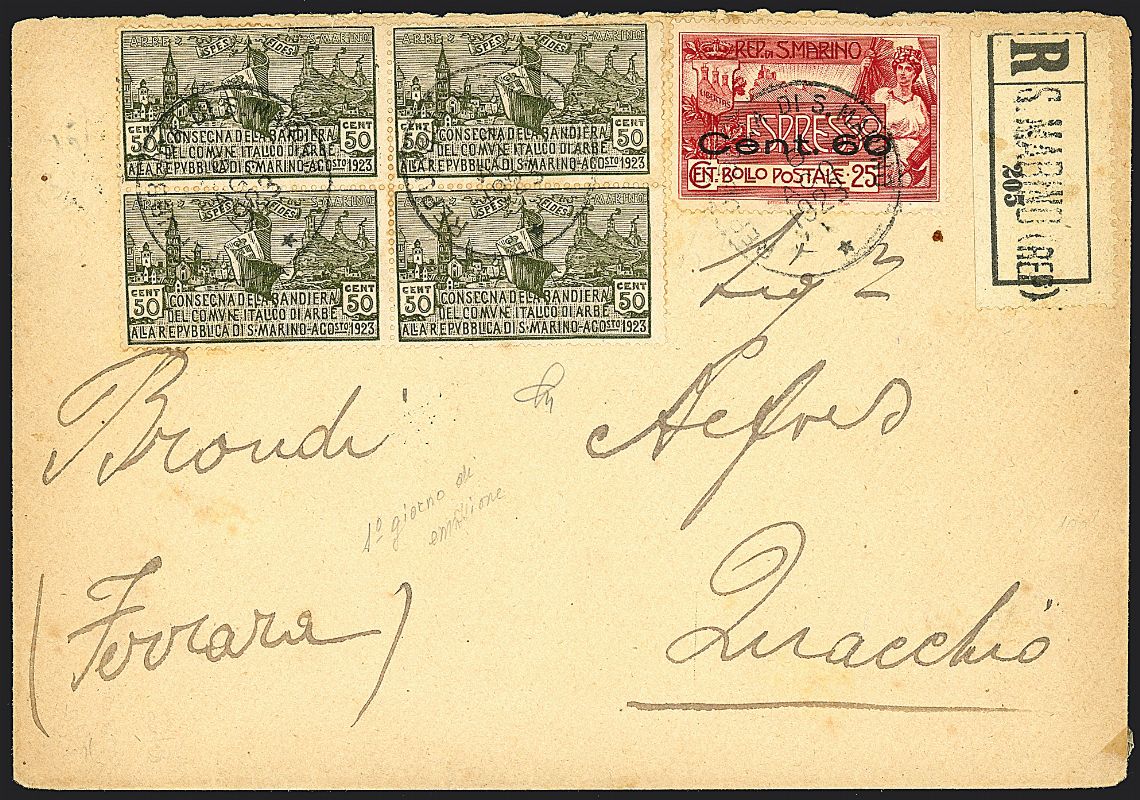 ARBE SPES FIDES S. MARINO
CENT 50 CENT 50
CONSEGNA DELA BANDIERA
DEL COMVNE ITALICO DI ARBE
ALLA REPVBBLICA DI S·MARINO-AGOSTO 1923
ARBE SPES FIDES S. MARINO
CENT 50 CENT 50
CONSEGNA DELA BANDIERA
DEL COMVNE ITALICO DI ARBE
ALLA REPVBBLICA DI S·MARINO-AGOSTO 1923
SPES FIDES MARINO
CENT 50 CENT 50
CONSEGNA DELA BANDIERA
DEL COMVNE ITALICO DI ARBE
ALLA REPVBBLICA DI S·MARINO-AGOSTO 1923
ARBE SPES FIDES MARINO
CENT 50 CENT 50
CONSEGNA DELA BANDIERA
DEL COMVNE ITALICO DI ARBE
ALLA REPVBBLICA DI S·MARINO-AGOSTO 1923
REP. DI S. MARINO
LIBERTAS
ESPRESSO
Cent. 60
CENT. BOLLO POSTALE · 25
DI S. MARINO
1923
R
S. MARINO (REP)
205
Sig
Brondi Alfred
1º giorno di
emissione
(Ferrara)
Quacchio